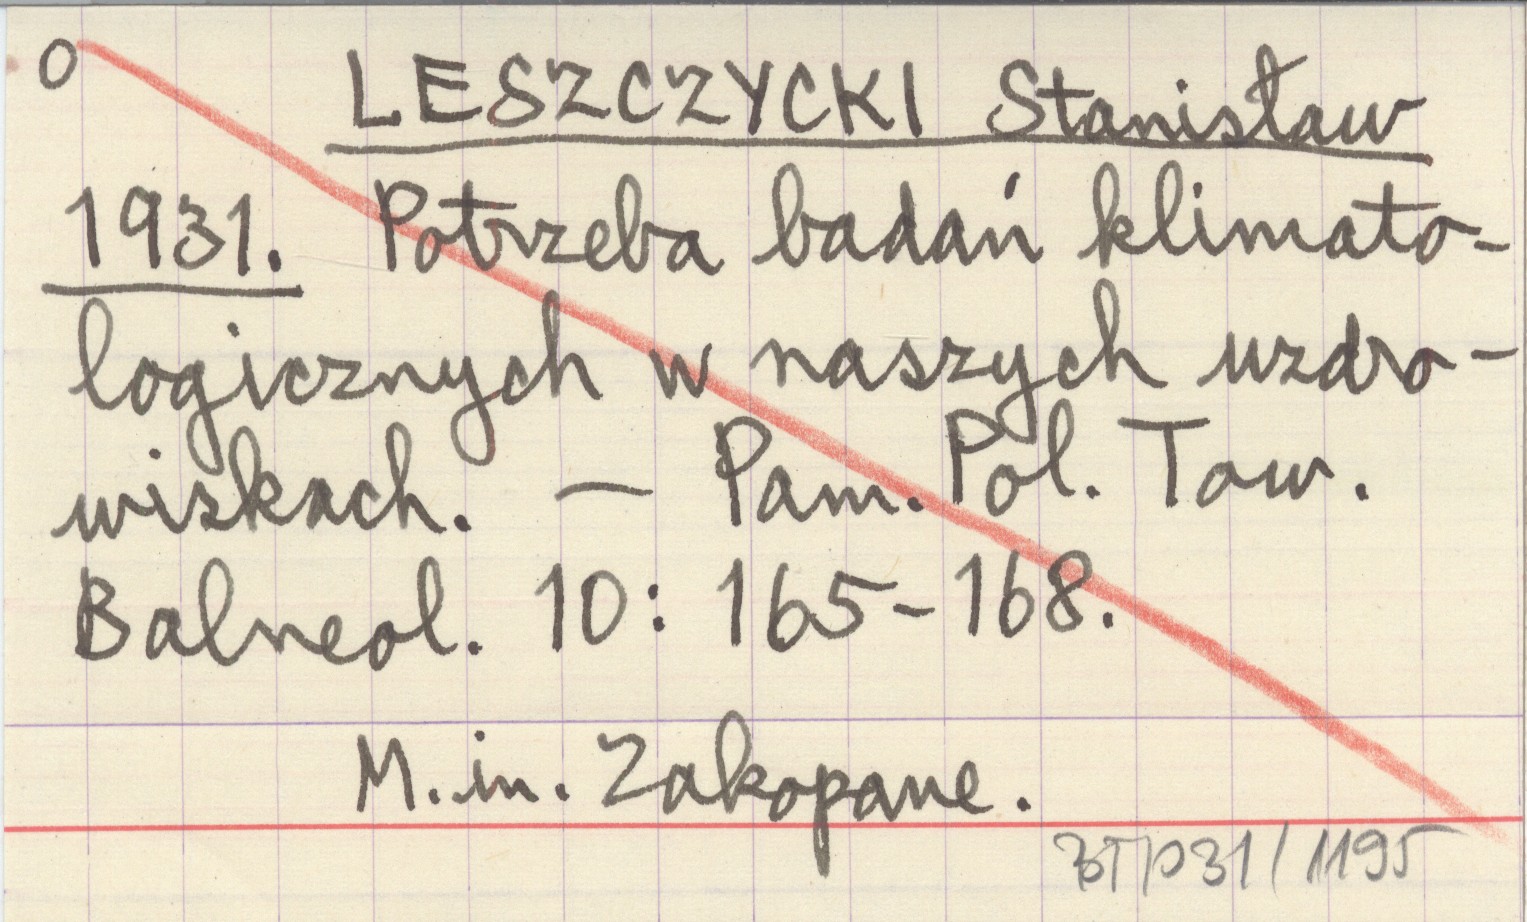 O LESZCZYCKI Stanisław
1931. Potrzeba badań klimato-
logicznych w naszych uzdro-
wiskach. — Pam. Pol. Tow.
Balneol. 10: 165-168.
M. in. Zakopane.
BTP31/1195